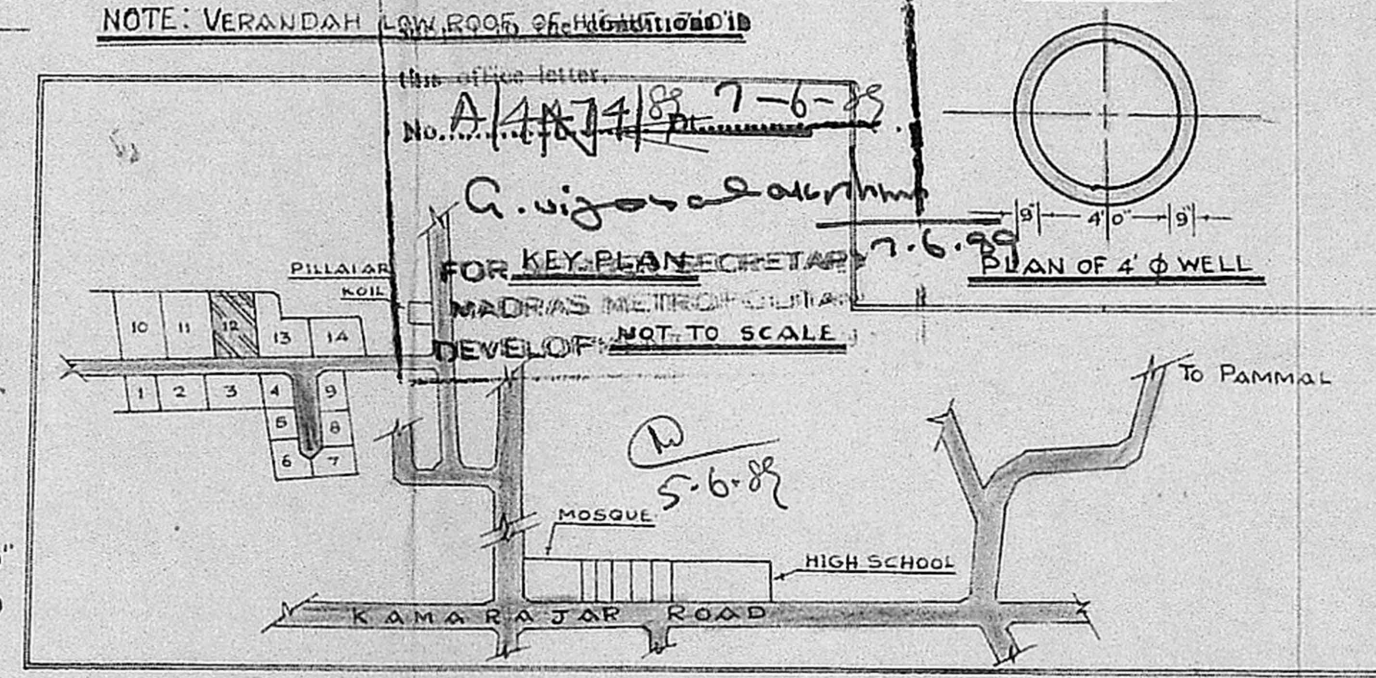 NOTE: VERANDAH LOW ROOF OF
this office letter.
No. A/4174/89 Dt. 7-6-89
7.6.89
FOR SECRETARY
MADRAS METROPOLITAN
DEVELOP
KEY PLAN
NOT TO SCALE
9" 4' 0" 9"
PLAN OF 4' ϕ WELL
PILLAIAR
KOIL
10 11 12 13 14
1 2 3 4 9
5 8
6 7
To PAMMAL
5.6.89
MOSQUE
HIGH SCHOOL
KAMARAJAR ROAD